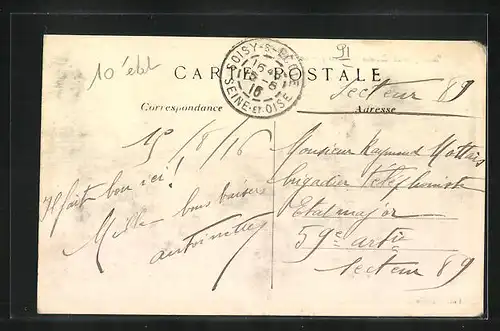 91
10 états
CARTE POSTALE
SOISY-S-ECOLE
16
15-8
16
SEINE-ET-OISE
Secteur 89
Correspondance
Adresse
15/8/16
Il fait bon ici !
Mille bons baisers
antoinette
Monsieur Raymond Mottais
brigadier Téléphoniste
Etat major
59e artie
Secteur 89